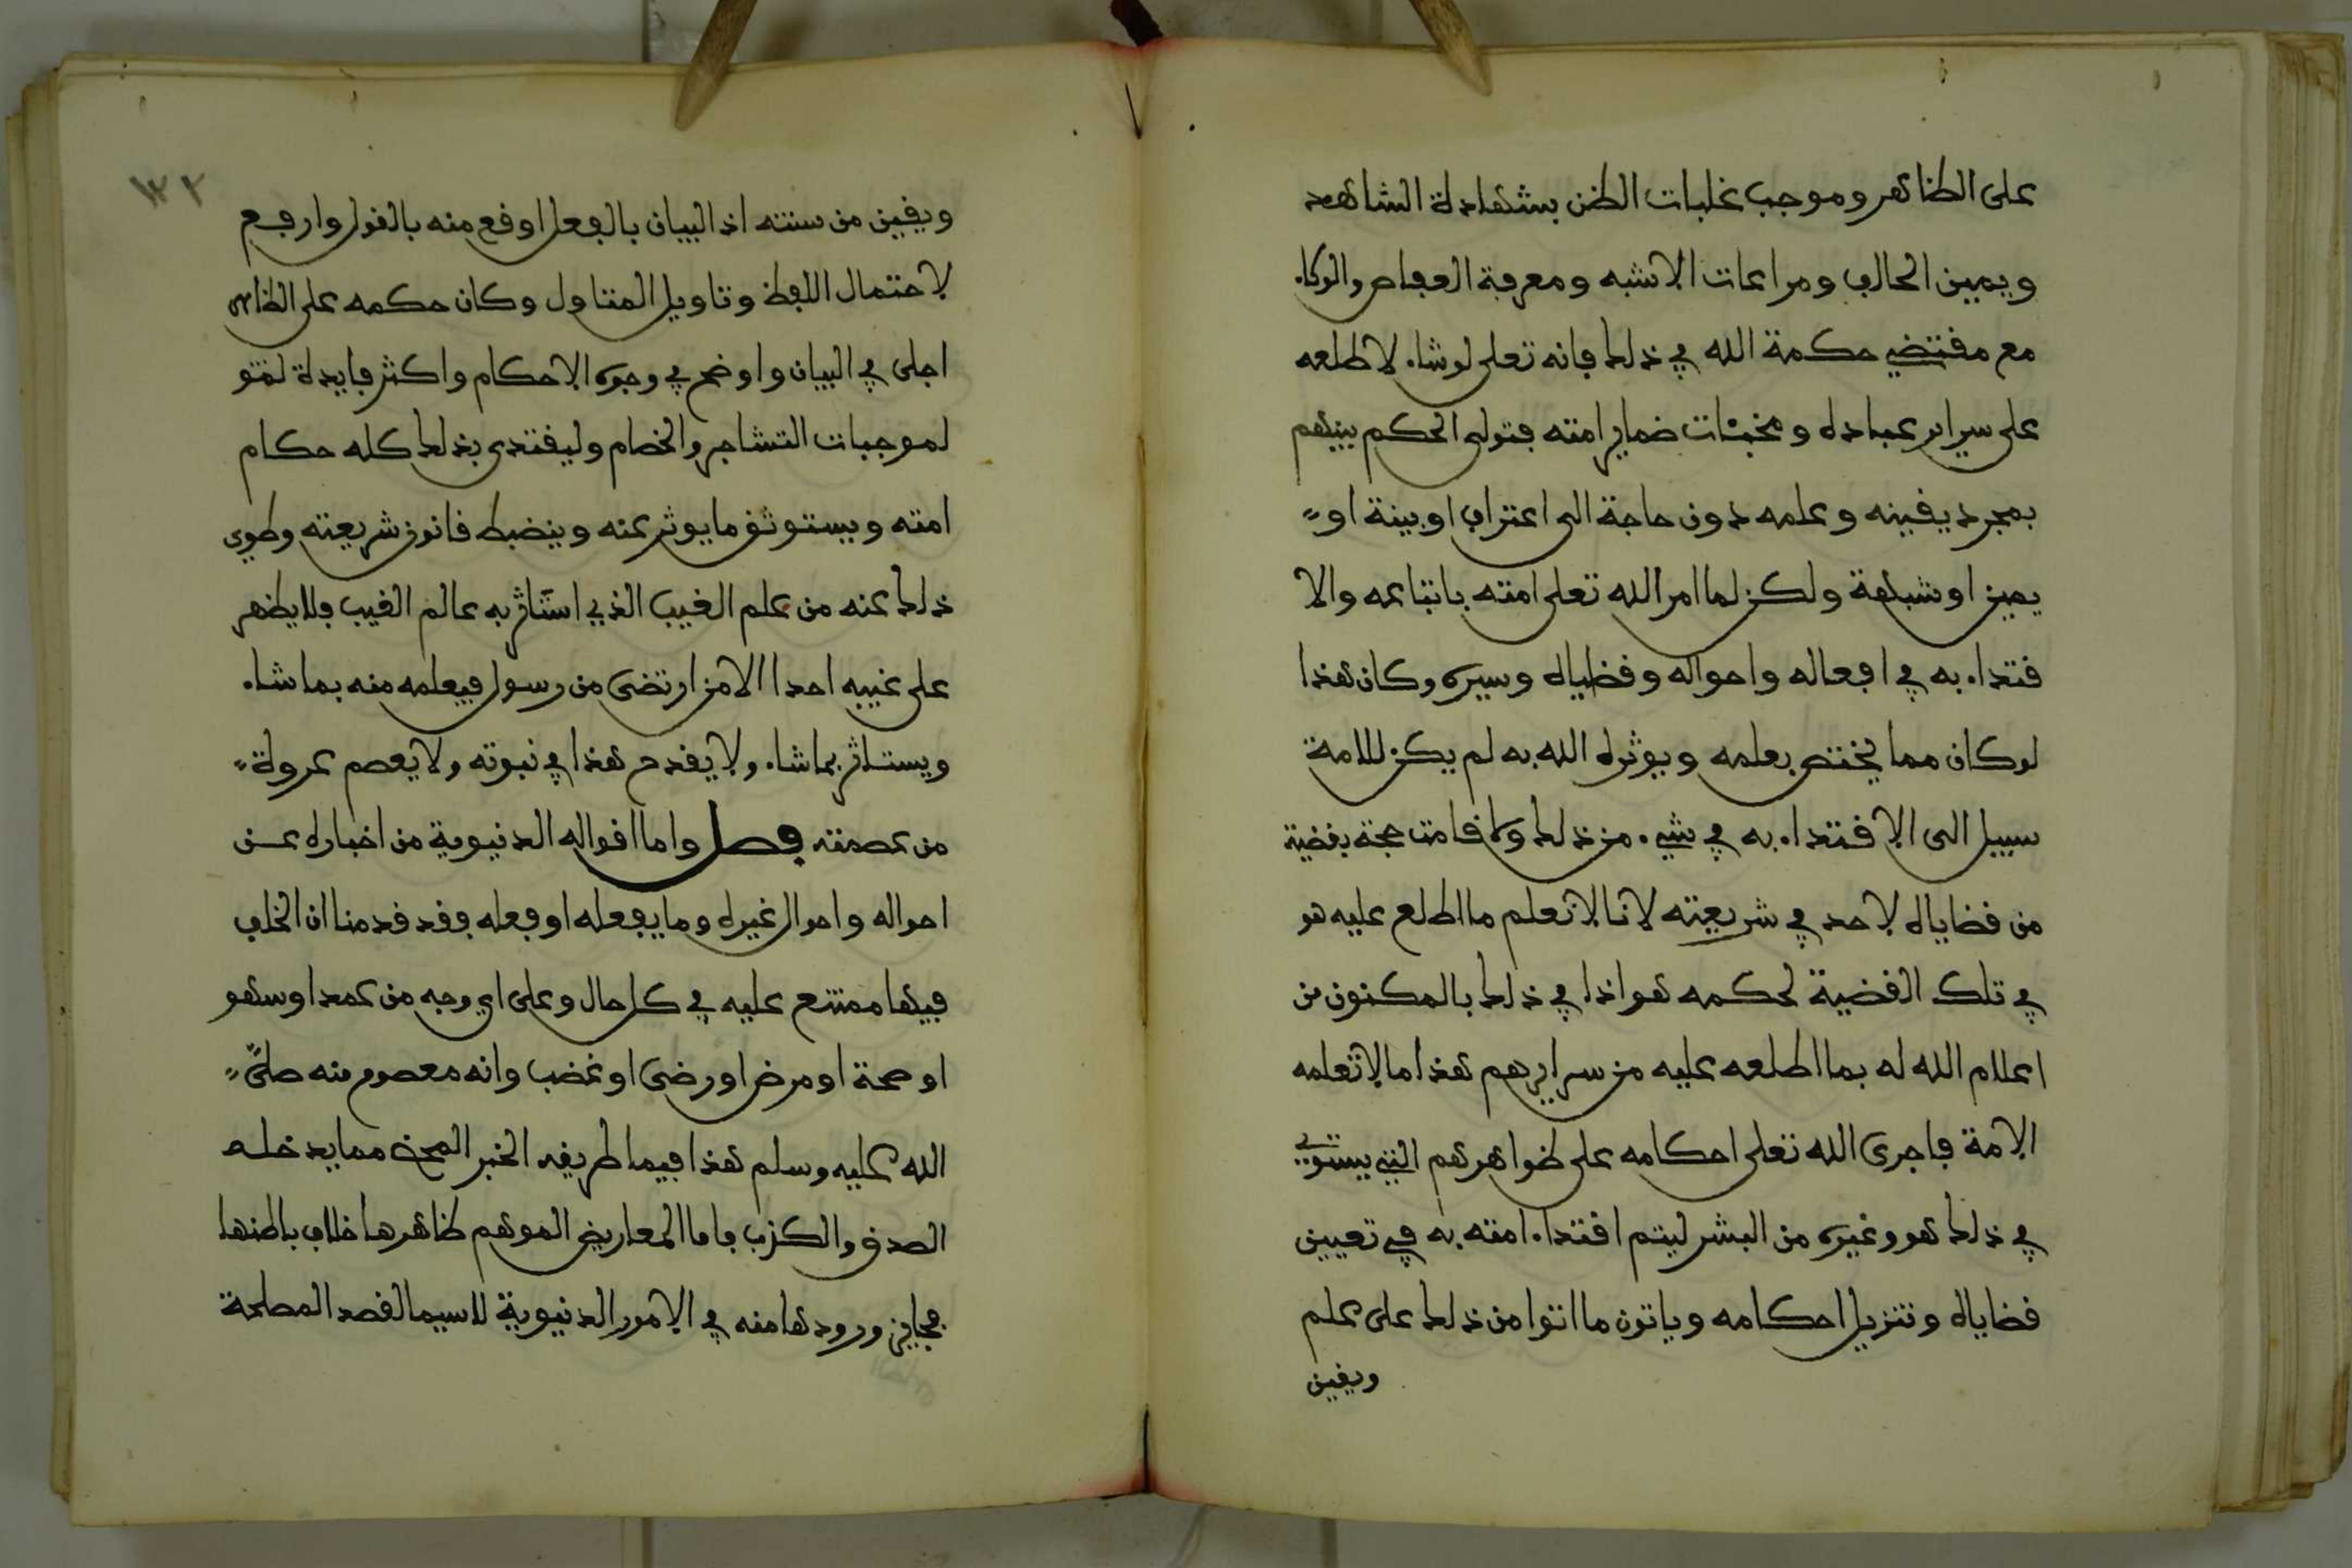 على الظاهر وموجب غلبات الظن بشهادة الشاهد
ويمين الحالف ومراعات الاشبه ومعرفة العفاص والوكاء
مع مقتضى حكمة الله في ذلك فانه تعلى لو شاء لاطلعه
على سراير عباده ومخبئات ضماير امته فتولى الحكم بينهم
بمجرد يقينه وعلمه دون حاجة الى اعتراف او بينة او
يمين او شبهة ولكن لما امر الله تعلى امته باتباعه والا
قتداء به في افعاله واحواله وقضاياه وسيره وكان هذا
لو كان مما يختص بعلمه ويوثره الله به لم يكن للامة
سبيل الى الاقتداء به في شيء من ذلك ولا قامت حجة بقضية
من قضاياه لاحد في شريعته لانا لا نعلم ما اطلع عليه هو
في تلك القضية لحكمه هو اذا في ذلك بالمكنون من
اعلام الله له بما اطلعه عليه من سرايرهم هذا ما لا تعلمه
الامة فاجرى الله تعلى احكامه على ظواهرهم التي يستوي
في ذلك هو وغيره من البشر ليتم اقتداء امته به في تعيين
قضاياه وتنزيل احكامه وياتون ما اتوا من ذلك على علم
ويقين
١٣٢
ويقين من سنته اذ البيان بالفعل اوقع منه بالقول وارفع
لاحتمال اللفظ وتاويل المتاول وكان حكمه على الظاهر
اجلى في البيان واوضح في وجوه الاحكام واكثر فايدة لتقو
لموجبات التشاجر والخصام وليقتدى بذلك كله حكام
امته ويستوثق ما يوثر عنه وينضبط قانون شريعته وطوي
ذلك عنه من علم الغيب الذي استاثر به عالم الغيب فلا يظهر
على غيبه احدا الا من ارتضى من رسول فيعلمه منه بما شاء
ويستاثر بما شاء ولا يقدح هذا في نبوته ولا يفصم عروة
من عصمته فصل واما اقواله الدنيوية من اخباره عن
احواله واحوال غيره وما يفعله او فعله فقد قدمنا ان الخلف
فيها ممتنع عليه في كل حال وعلى اي وجه من عمد او سهو
او صحة او مرض او رضى او غضب وانه معصوم منه صلى
الله عليه وسلم هذا فيما طريقه الخبر المحض مما يدخله
الصدق والكذب فاما المعاريض الموهم ظاهرها خلاف باطنها
فجايز ورودها منه في الامور الدنيوية لاسيما لقصد المصلحة